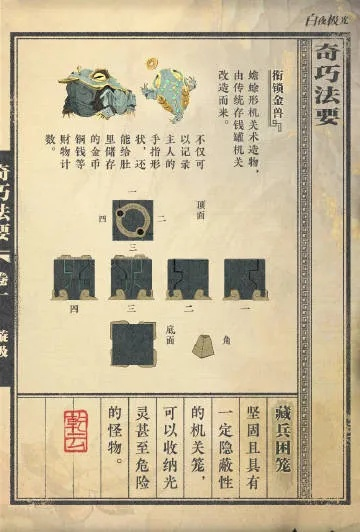 白夜极光
奇巧法要
衔锁金兽
蟾蜍形机关术造物，
由传统存钱罐机关
改造而来。
不仅可
以记录
主人的
手指形
状，还
能给肚
里储存
的金币
铜钱等
财物计
数。
一
顶面
四
二
三
四
三
二
一
底面
角
藏兵困笼
坚固且具有
一定隐蔽性
的机关笼，
可以收纳光
灵甚至危险
的怪物。
奇巧法要
卷一